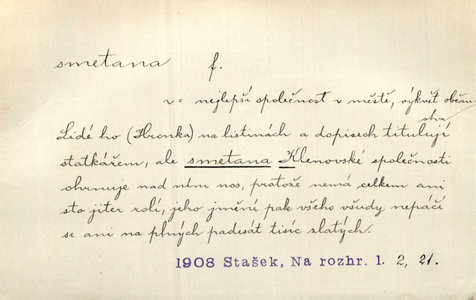 smetana f.
v = nejlepší společnost v městě, výkvět občan-
stva
Lidé ho (Hronka) na listinách a dopisech titulují
statkářem, ale smetana Klenovské společnosti
ohrnuje nad ním nos, protože nemá celkem ani
sto jiter rolí, jeho jmění pak všeho všudy nepáčí
se ani na plných padesát tisíc zlatých.
1908 Stašek, Na rozhr. 1. 2, 21.